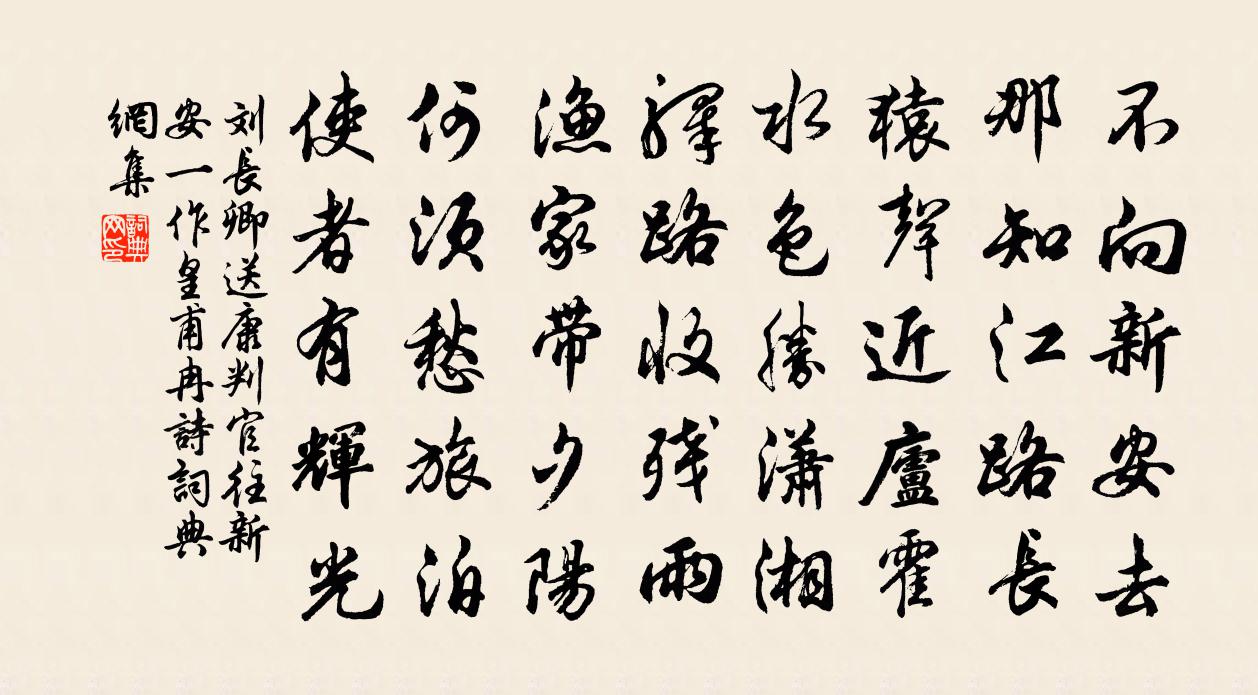 不向新安去
那知江路長
猿聲近廬霍
水色勝瀟湘
驛路收残雨
漁家带夕陽
何須愁旅泊
使者有輝光
刘長卿送康判官往新
安一作皇甫冉詩詞典
網集
詞典
网印